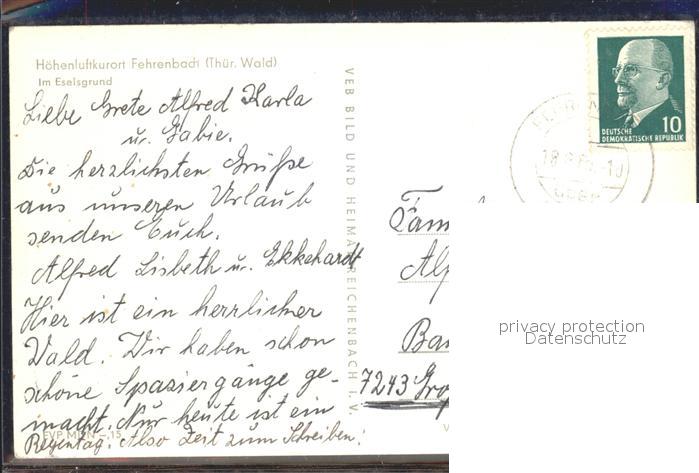 Höhenluftkurort Fehrenbach (Thür. Wald)
Im Eselsgrund
Liebe Grete Alfred Karla
u. Gabie.
Die herzlichsten Grüße
aus unseren Urlaub
senden Euch.
Alfred Lisbeth u. Ekkehardt
Hier ist ein herrlicher
Wald. Wir haben schon
schöne Spaziergänge ge-
macht. Nur heute ist ein
Regentag. Also Zeit zum Schreiben!
EVP MDN -,15
VEB BILD UND HEIMAT REICHENBACH I. V.
10
DEUTSCHE
DEMOKRATISCHE REPUBLIK
Fam
Alf
Ba
7243 Gro
privacy protection
Datenschutz